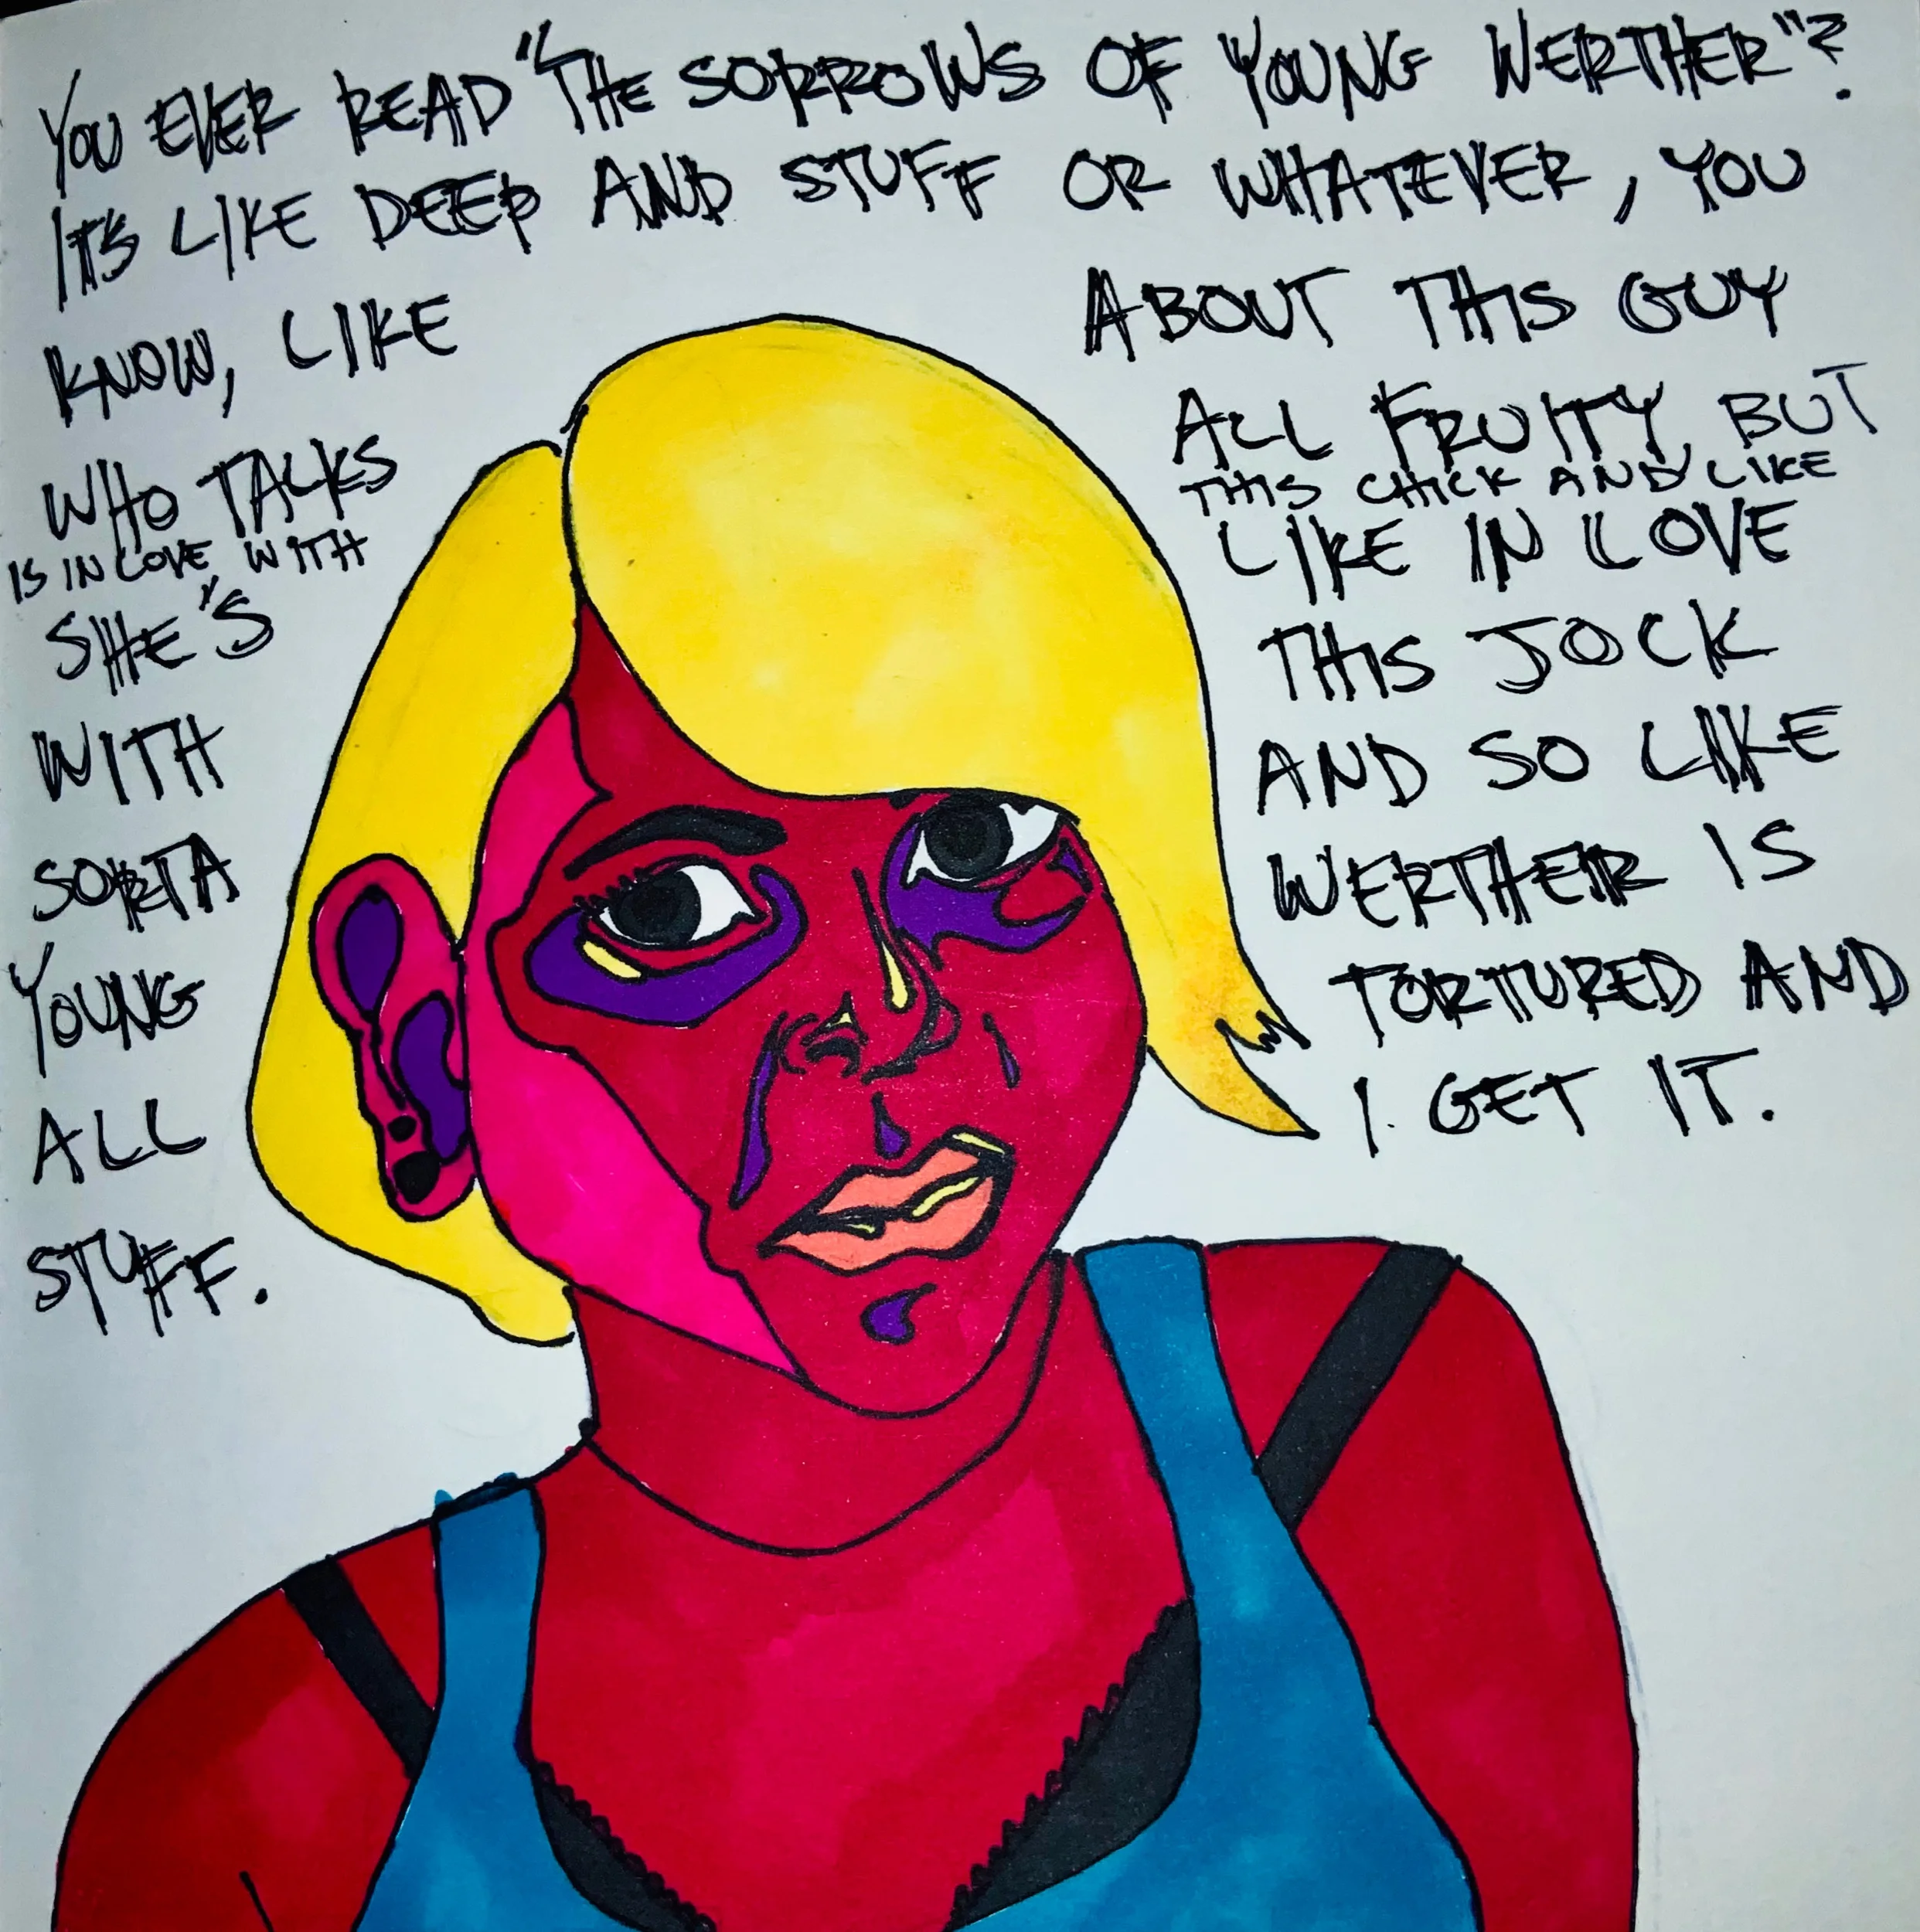 YOU EVER READ "THE SORROWS OF YOUNG WERTHER"?
IT'S LIKE DEEP AND STUFF OR WHATEVER, YOU
KNOW, LIKE ABOUT THIS GUY
WHO TALKS ALL FRUITY, BUT
IS IN LOVE WITH THIS CHICK AND LIKE
SHE'S LIKE IN LOVE
WITH THIS JOCK
SORTA AND SO LIKE
YOUNG WERTHER IS
ALL TORTURED AND
STUFF. I GET IT.